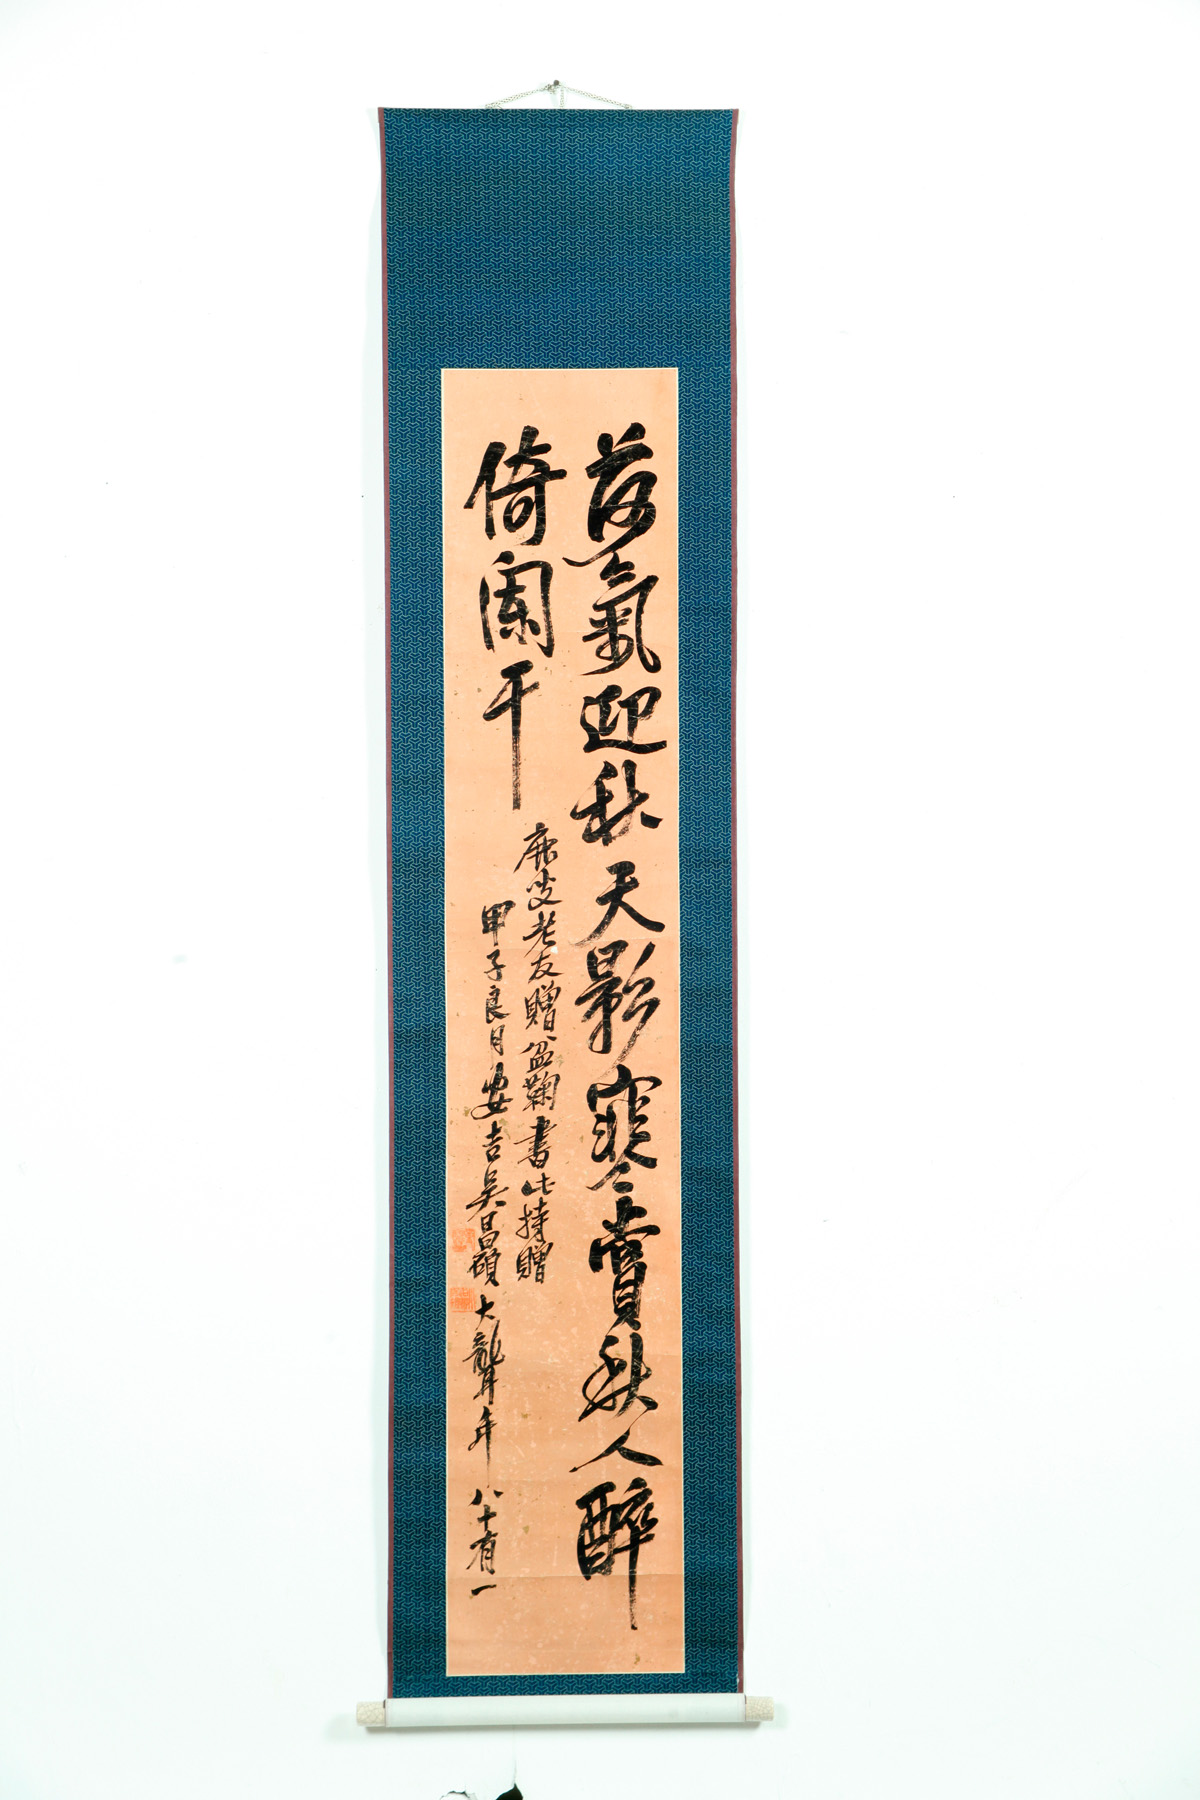 氣迎秋天影寒賞秋人醉
倚闌干
鹿叟老友贈盆鞠書此持贈
甲子良月安吉吳昌碩大聾年八十有一